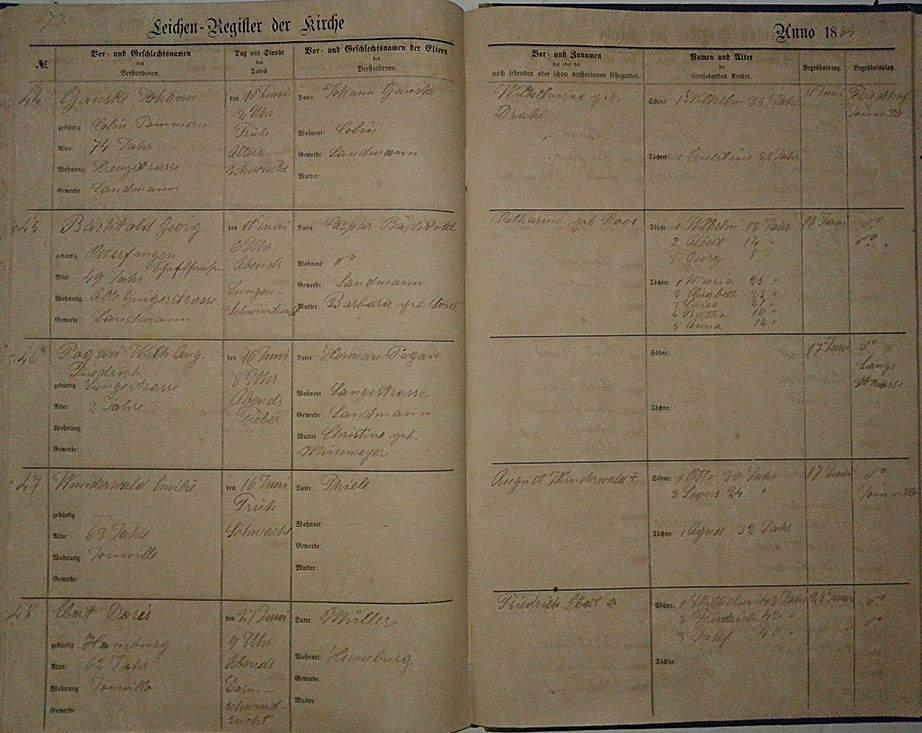 Leichen-Register der Kirche
Anno 18
№
Vor- und Geschlechtsnamen
des
Verstorbenen.
Tag und Stunde
des
Todes
Vor- und Geschlechtsnamen der Eltern
des
Verstorbenen.
Vor- und Zunamen
des oder der
noch lebenden oder schon verstorbenen Ehegatten.
Namen und Alter
der
überlebenden Kinder.
Begräbnißtag.
Begräbnißplatz.
44
Ganske Johann
gebürtig Cölin Pommern
Alter 74 Jahr
Wohnung Kreuzstrasse
Gewerbe Landmann
den 10 Juni
2 Uhr
Früh
Alters-
schwäche
Vater Johann Ganske
Wohnort Cölin
Gewerbe Landmann
Mutter:
Wilhelmine geb.
Söhne: 1 Wilhelm 35 Jahr
Töchter: 1 Ernestine 28 Jahr
Juni
Friedhof
45
Barthold Georg
gebürtig Osterfingen
Alter 49 Jahr
Wohnung
Gewerbe: Landmann
den 10 Juni
6 Uhr
Abends
Lungen-
Schwindsucht
Vater Caspar Barthold
Wohnort do
Gewerbe Landmann
Mutter Barbara geb.
Catharina geb Roos
Söhne: 1 Wilhelm 18 Jahr
2 Albert 14 "
3 Georg 8 "
Töchter: 1 Maria 25 "
2
3 Luise
4 Bertha 16 "
5 Anna 12 "
13 Juni
do
do
46
Pagan Wilh. Aug.
Friedrich
gebürtig Langestrasse
Alter 2 Jahre
Wohnung
Gewerbe:
den 16 Juni
8 Uhr
Abends
Fieber
Vater: Herman Pagan
Wohnort Langestrasse
Gewerbe: Landmann
Mutter Christine geb.
Müsemeyer
Söhne:
Töchter:
17 Juni
do
Lange
Strasse
47
Wunderwald Emilie
gebürtig —
Alter 63 Jahre
Wohnung Joinville
Gewerbe:
den 16 Juni
Früh
Schwäche
Vater: Thiele
Wohnort —
Gewerbe:
Mutter:
August Wunderwald +
Söhne: 1 Otto 30 Jahr
2 Leons 24 "
Töchter: 1 Agnes 32 Jahr
17 Juni
do
Joinville
48
Ebert Doris
gebürtig Hamburg
Alter 62 Jahr
Wohnung Joinville
Gewerbe
den 27 Juni
9 Uhr
Abends
Darm-
schwind-
sucht
Vater Müller
Wohnort Hamburg
Gewerbe:
Mutter
Friedrich Ebert
Söhne: 1 Wilhelm 43 Jahr
2 Friedrich 42 "
3 Josef 40 "
Töchter:
Juni
do
do